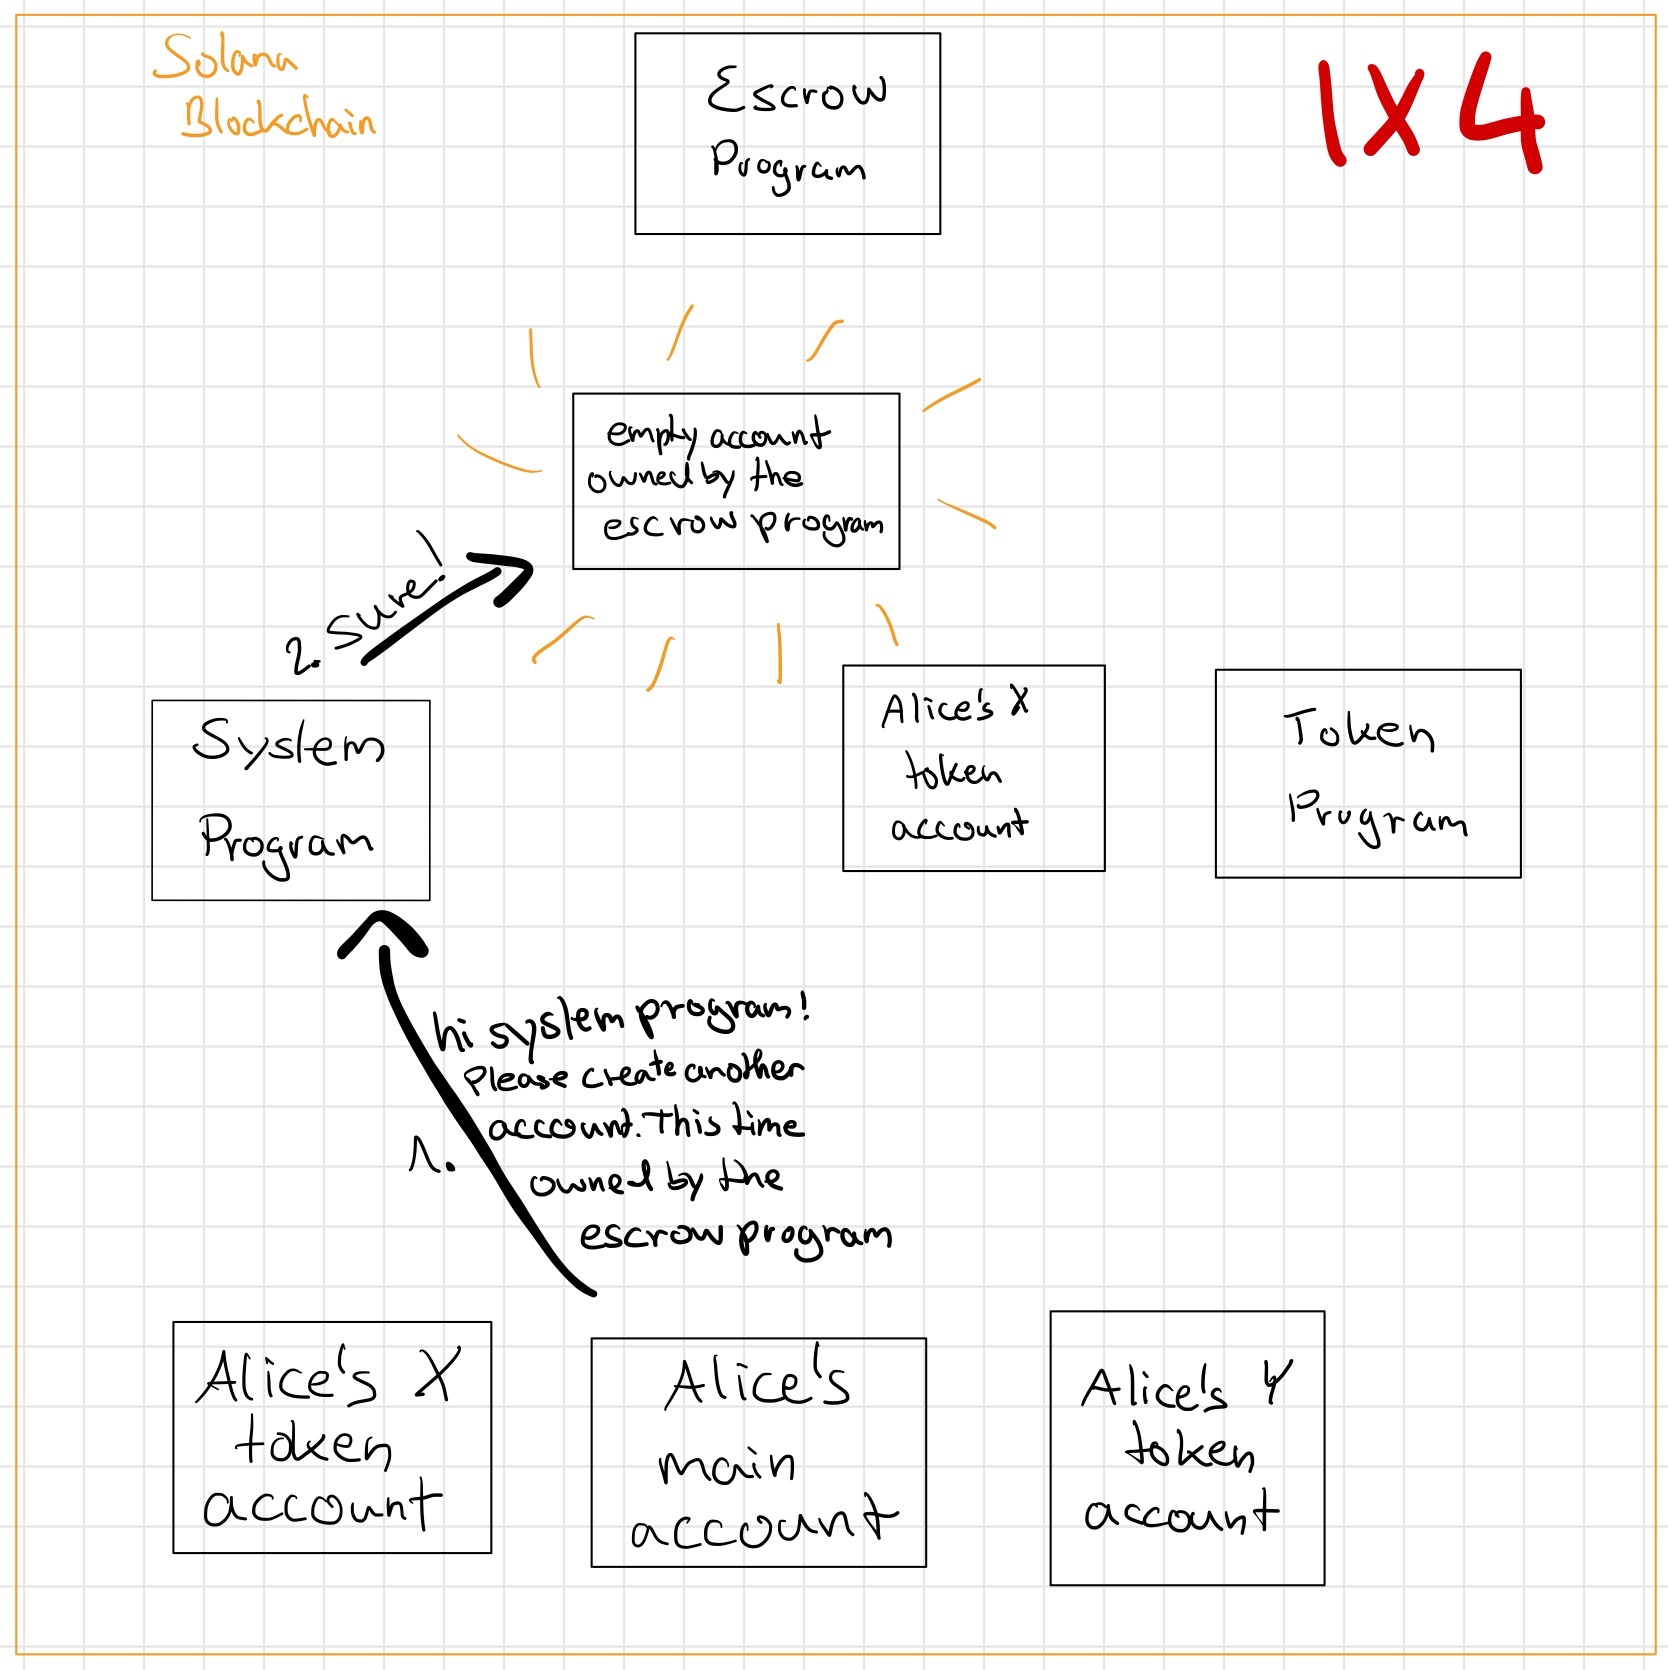 Solana
Blockchain
Escrow
Program
IX 4
empty account
owned by the
escrow program
2. Sure!
System
Program
Alice's X
token
account
Token
Program
1.
hi system program!
Please create another
acccount. This time
owned by the
escrow program
Alice's X
token
account
Alice's
main
account
Alice's Y
token
account